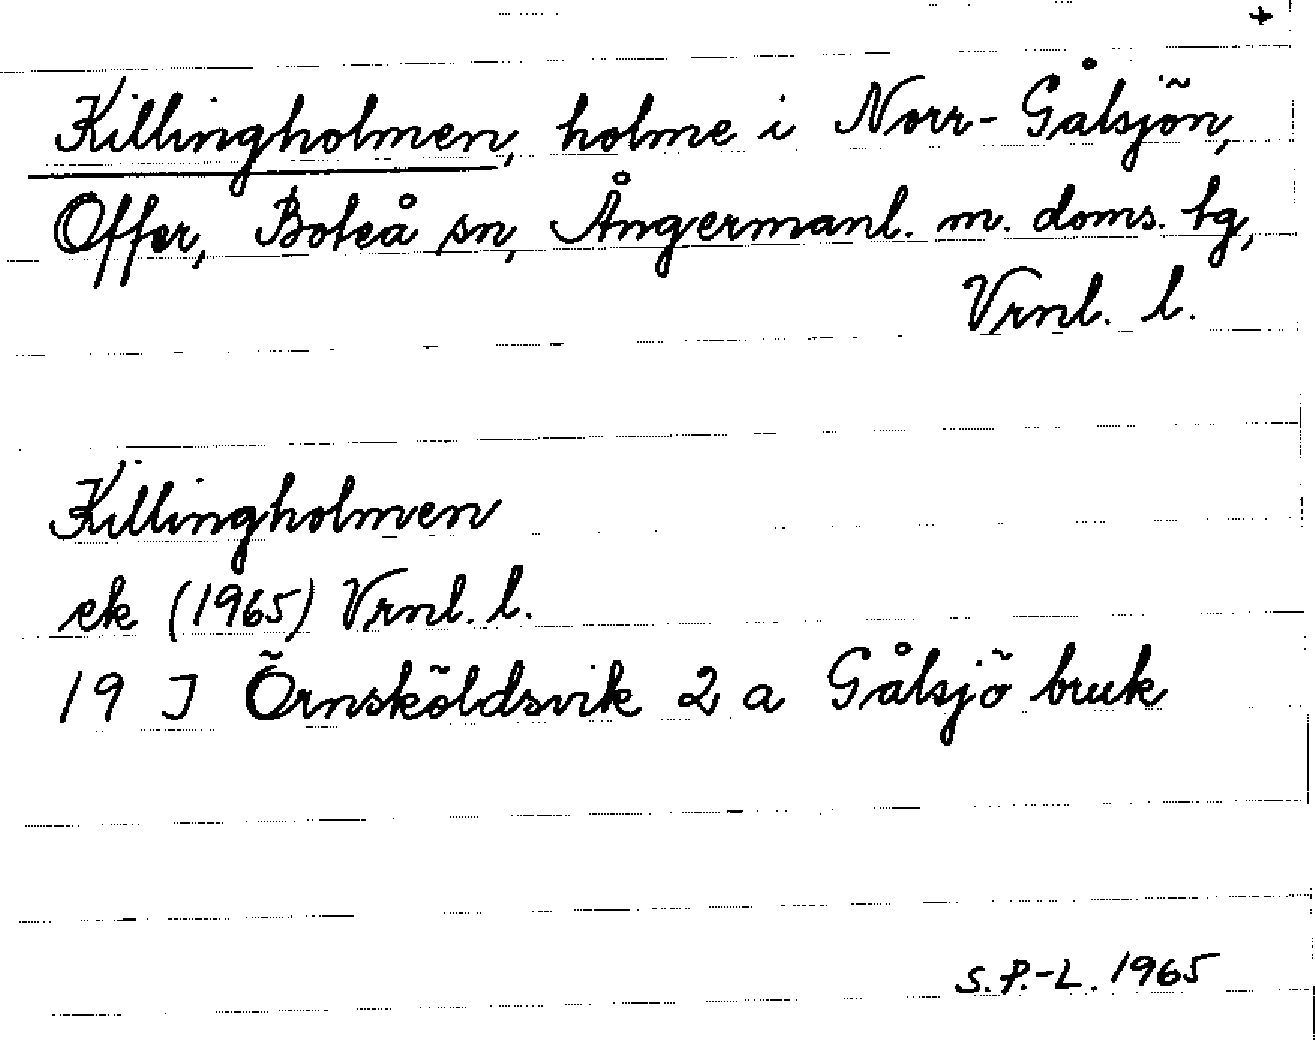 +
Killingholmen, holme i Norr-Gålsjön,
Offer, Boteå sn, Ångermanl. m. doms. tg,
Vrnl. l.
Killingholmen
ek (1965) Vrnl. l.
19 J Örnsköldsvik 2 a Gålsjö bruk
S.P.-L. 1965